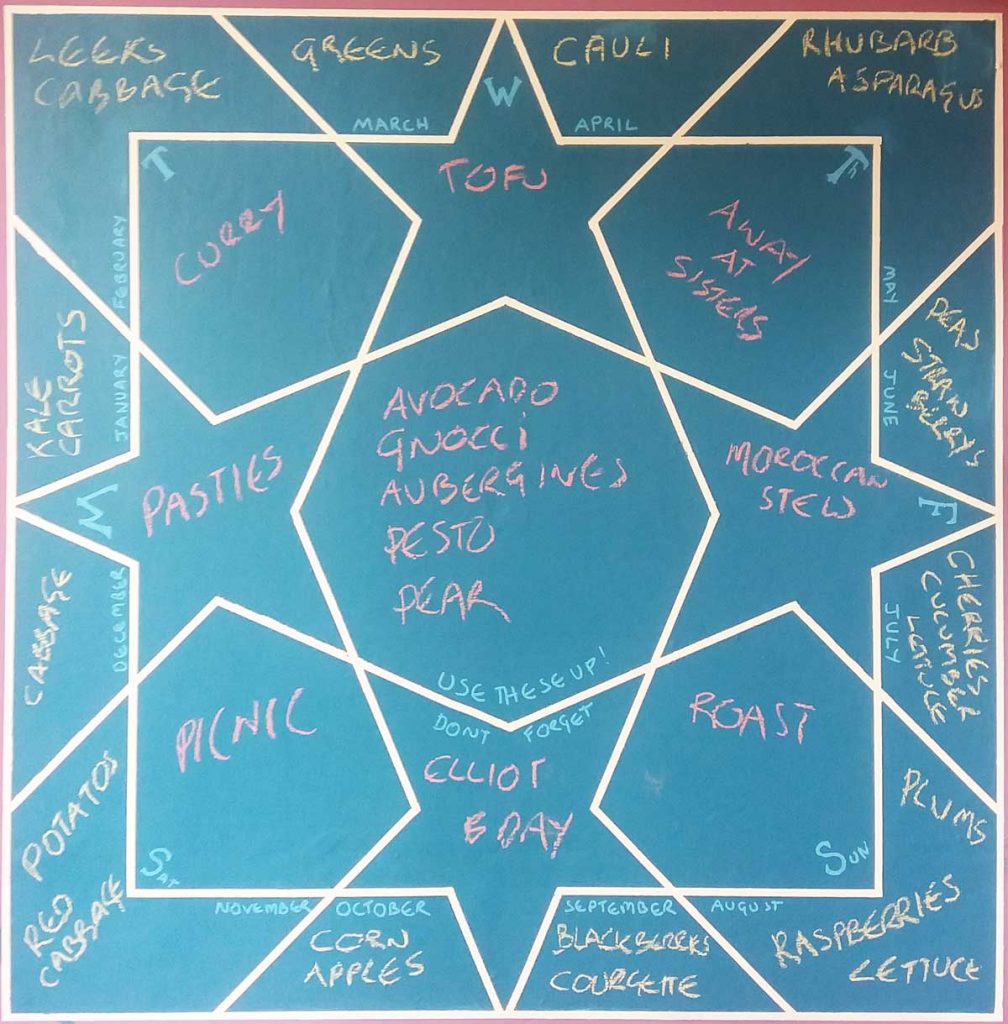 LEEKS
CABBAGE
GREENS
CAULI
RHUBARB
ASPARAGUS
W
MARCH
APRIL
T
TOFU
Th
CURRY
AWAY
AT
SISTERS
FEBRUARY
MAY
JANUARY
JUNE
KALE
CARROTS
PEAS
STRAW
BERRY'S
AVOCADO
GNOCCI
AUBERGINES
PESTO
PEAR
M
PASTIES
MOROCCAN
STEW
F
CABBAGE
DECEMBER
JULY
CHERRIES
CUCUMBER
LETTUCE
USE THESE UP!
DONT FORGET
PICNIC
ELLIOT
B DAY
ROAST
POTATOS
RED
CABBAGE
PLUMS
SAT
SUN
NOVEMBER
OCTOBER
SEPTEMBER
AUGUST
CORN
APPLES
BLACKBERRIES
COURGETTE
RASPBERRIES
LETTUCE